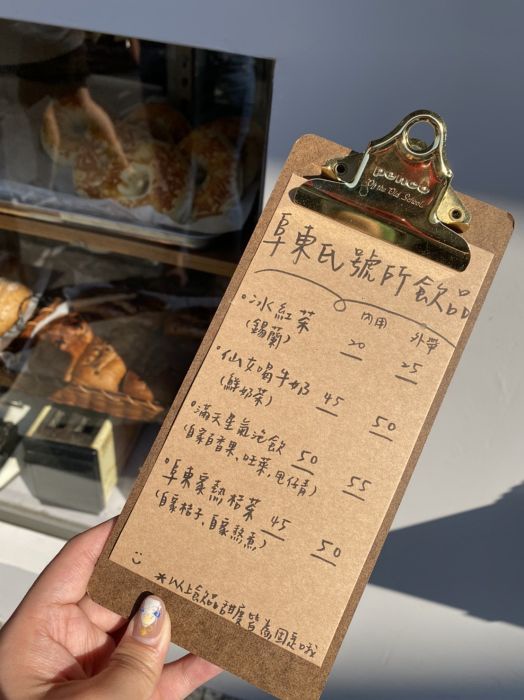 penco
On the Old School
阜東氏號所飲品
內用 外帶
冰紅茶 20 25
(錫蘭)
仙女喝牛奶 45 50
(鮮奶茶)
滿天星氣泡飲 50 55
(自家百香果、旺萊、
阜東家熱桔茶 45 50
(自家桔子、自家熬煮)
*以上飲品甜度皆為固定哦